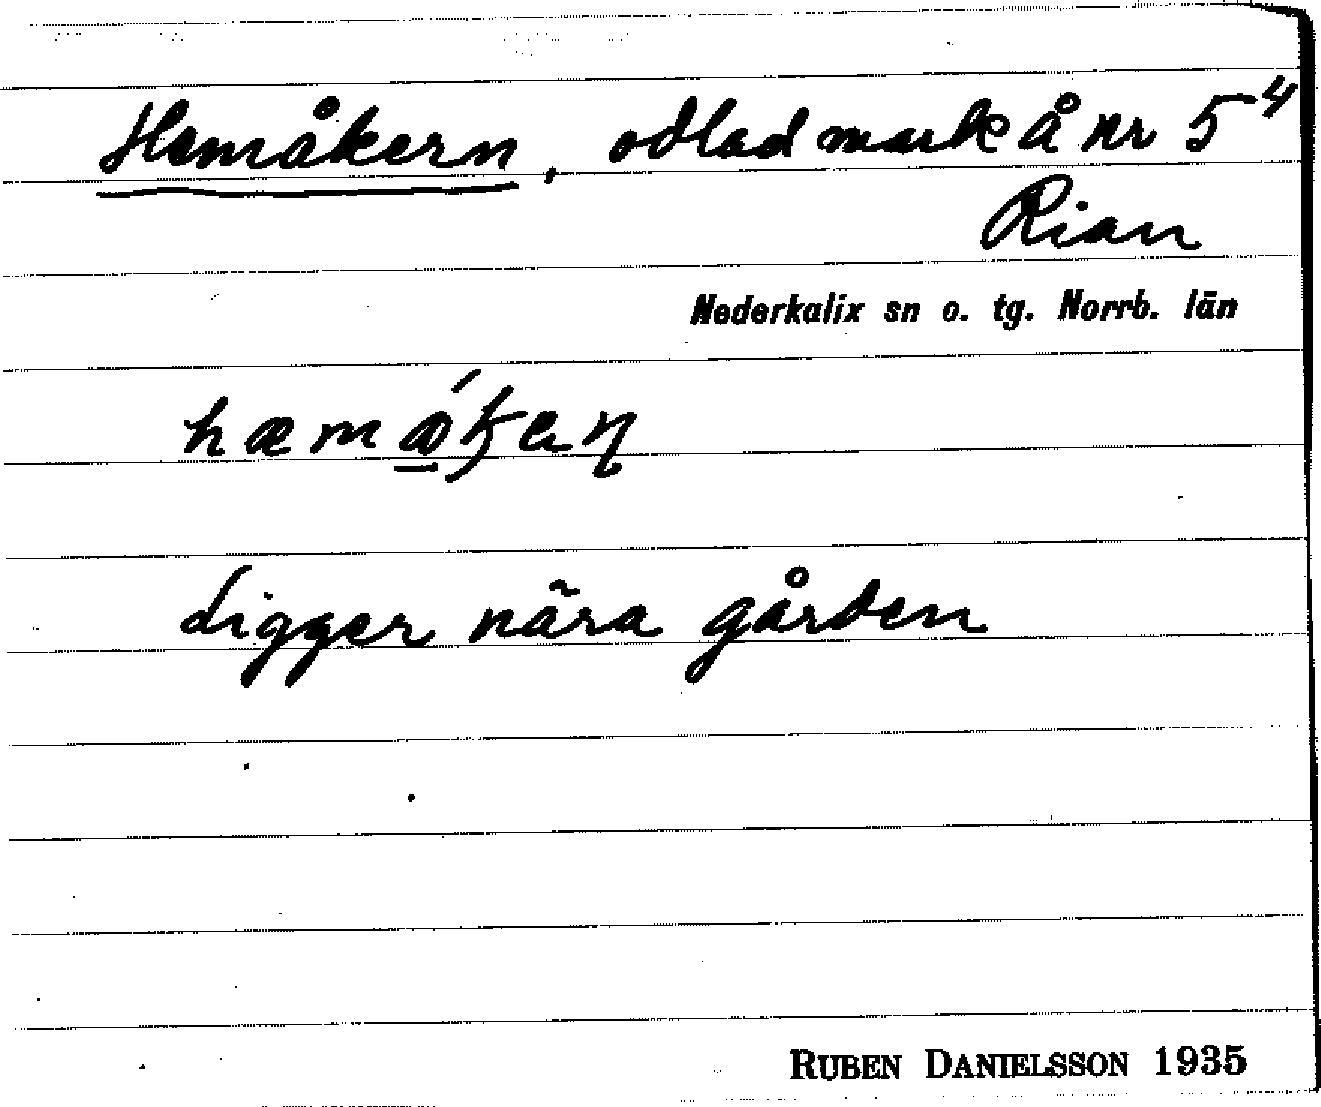 Hemåkern, odlad mark å nr 5⁴
Rian
Nederkalix sn o. tg. Norrb. län
ligger nära gården
RUBEN DANIELSSON 1935